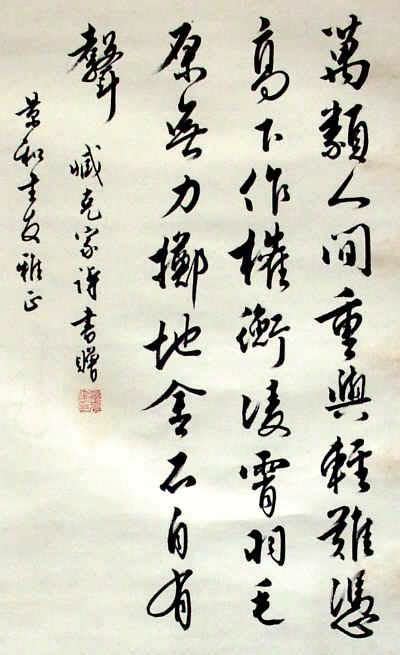 萬類人間重與輕難憑
高下作權衡凌霄羽毛
原無力擲地金石自有
聲
臧克家詩書贈
景和老友雅正